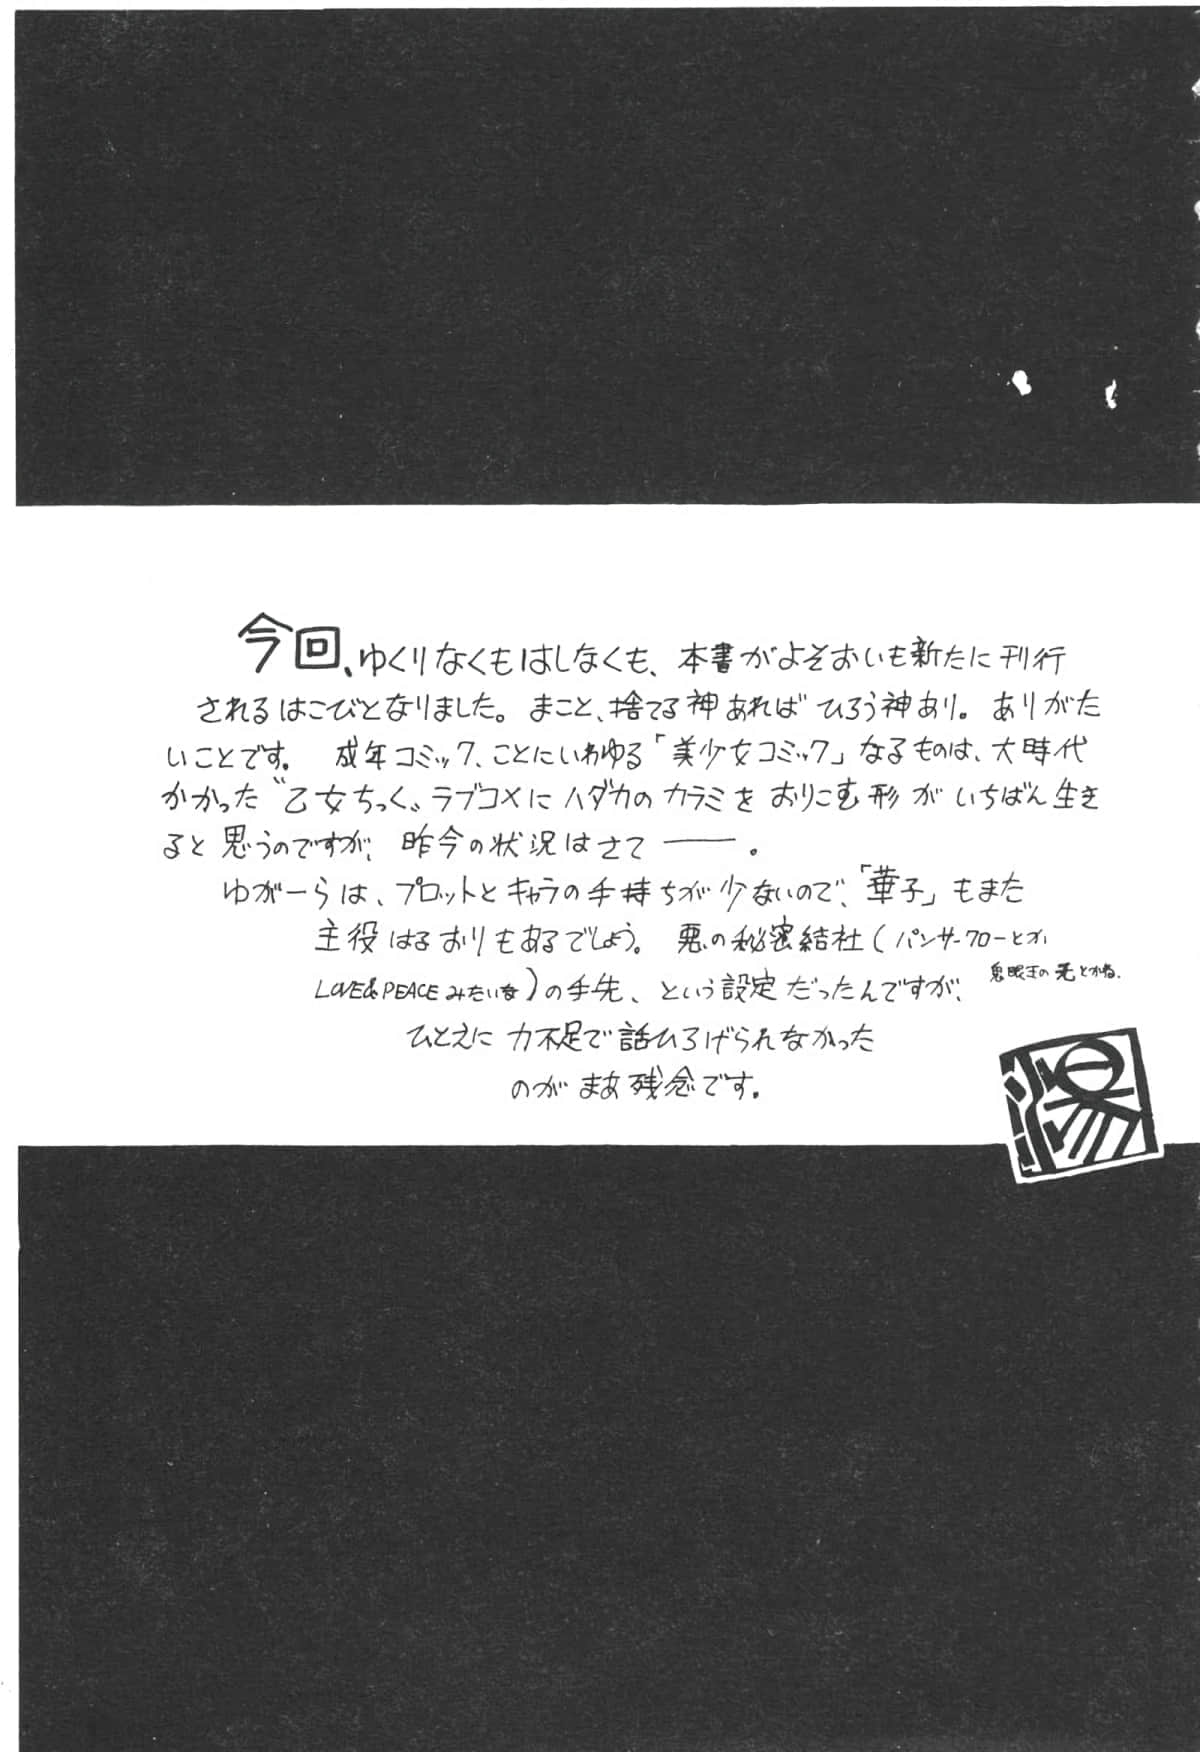 今回、ゆくりなくもはしなくも、本書がよそおいも新たに刊行
されるはこびとなりました。まこと、捨てる神あれば ひろう神あり。ありがた
いことです。 成年コミック、ことにいわゆる「美少女コミック」なるものは、大時代
かかった〝乙女ちっく〟ラブコメにハダカのカラミを おりこむ形が いちばん生き
ると思うのですが、昨今の状況はさて――。
ゆがーらは、プロットとキャラの手持ちが少ないので、「華子」もまた
主役はるおりもあるでしょう。 悪の秘密結社(パンサークローとか
LOVE&PEACEみたいな)の手先、という設定だったんですが、
鬼眼王の とかね。
ひとえに力不足で話ひろげられなかった
のがまあ残念です。